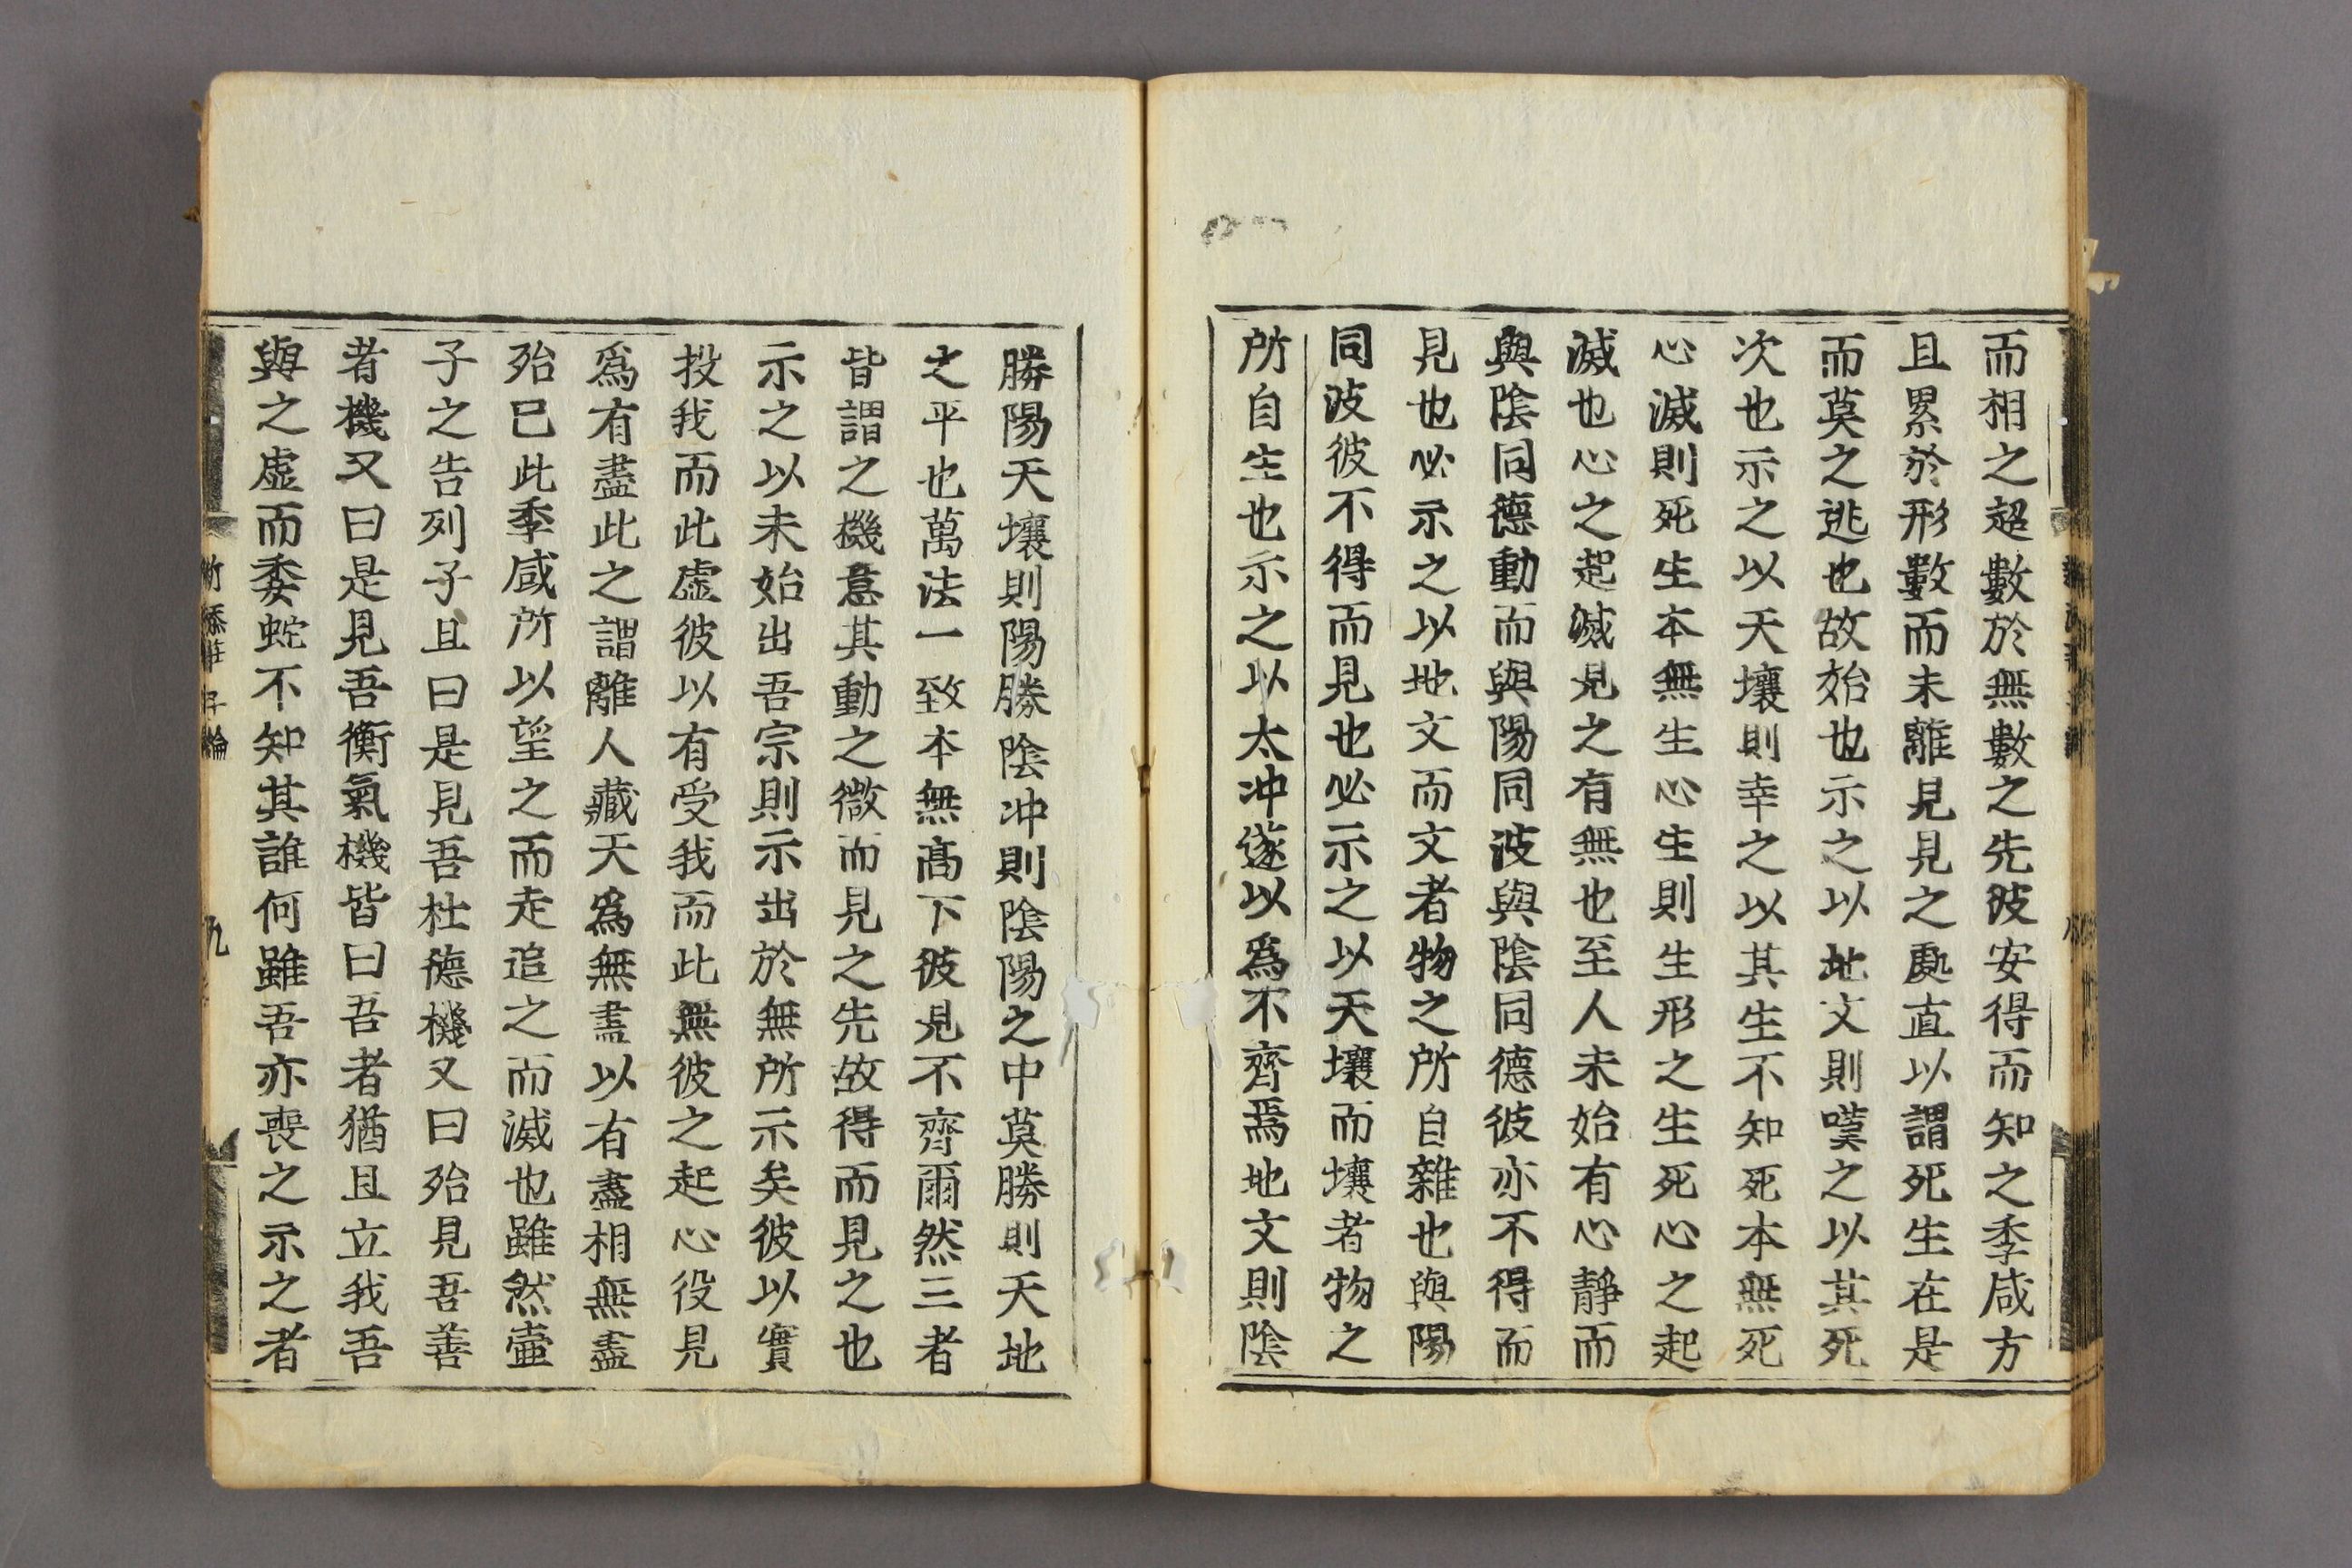 而相之超數於無數之先彼安得而知之季咸方
且累於形數而未離見見之處直以謂死生在是
而莫之逃也故始也示之以地文則嘆之以其死
次也示之以天壤則幸之以其生不知死本無死
心滅則死生本無生心生則生形之生死心之起
滅也心之起滅見之有無也至人未始有心靜而
與陰同德動而與陽同波與陰同德彼亦不得而
見也必示之以地文而文者物之所自雜也與陽
同波彼不得而見也必示之以天壤而壤者物之
所自生也示之以太冲遂以爲不齊焉地文則陰
勝陽天壤則陽勝陰冲則陰陽之中莫勝則天地
之平也萬法一致本無高下彼見不齊爾然三者
皆謂之機意其動之微而見之先故得而見之也
示之以未始出吾宗則示出於無所示矣彼以實
投我而此虛彼以有受我而此無彼之起心役見
爲有盡此之謂離人藏天爲無盡以有盡相無盡
殆已此季咸所以望之而走追之而滅也雖然壷
子之告列子且曰是見吾杜德機又曰殆見吾善
者機又曰是見吾衡氣機皆曰吾者猶且立我吾
與之虛而委蛇不知其誰何雖吾亦喪之示之者
新添莊子論 九